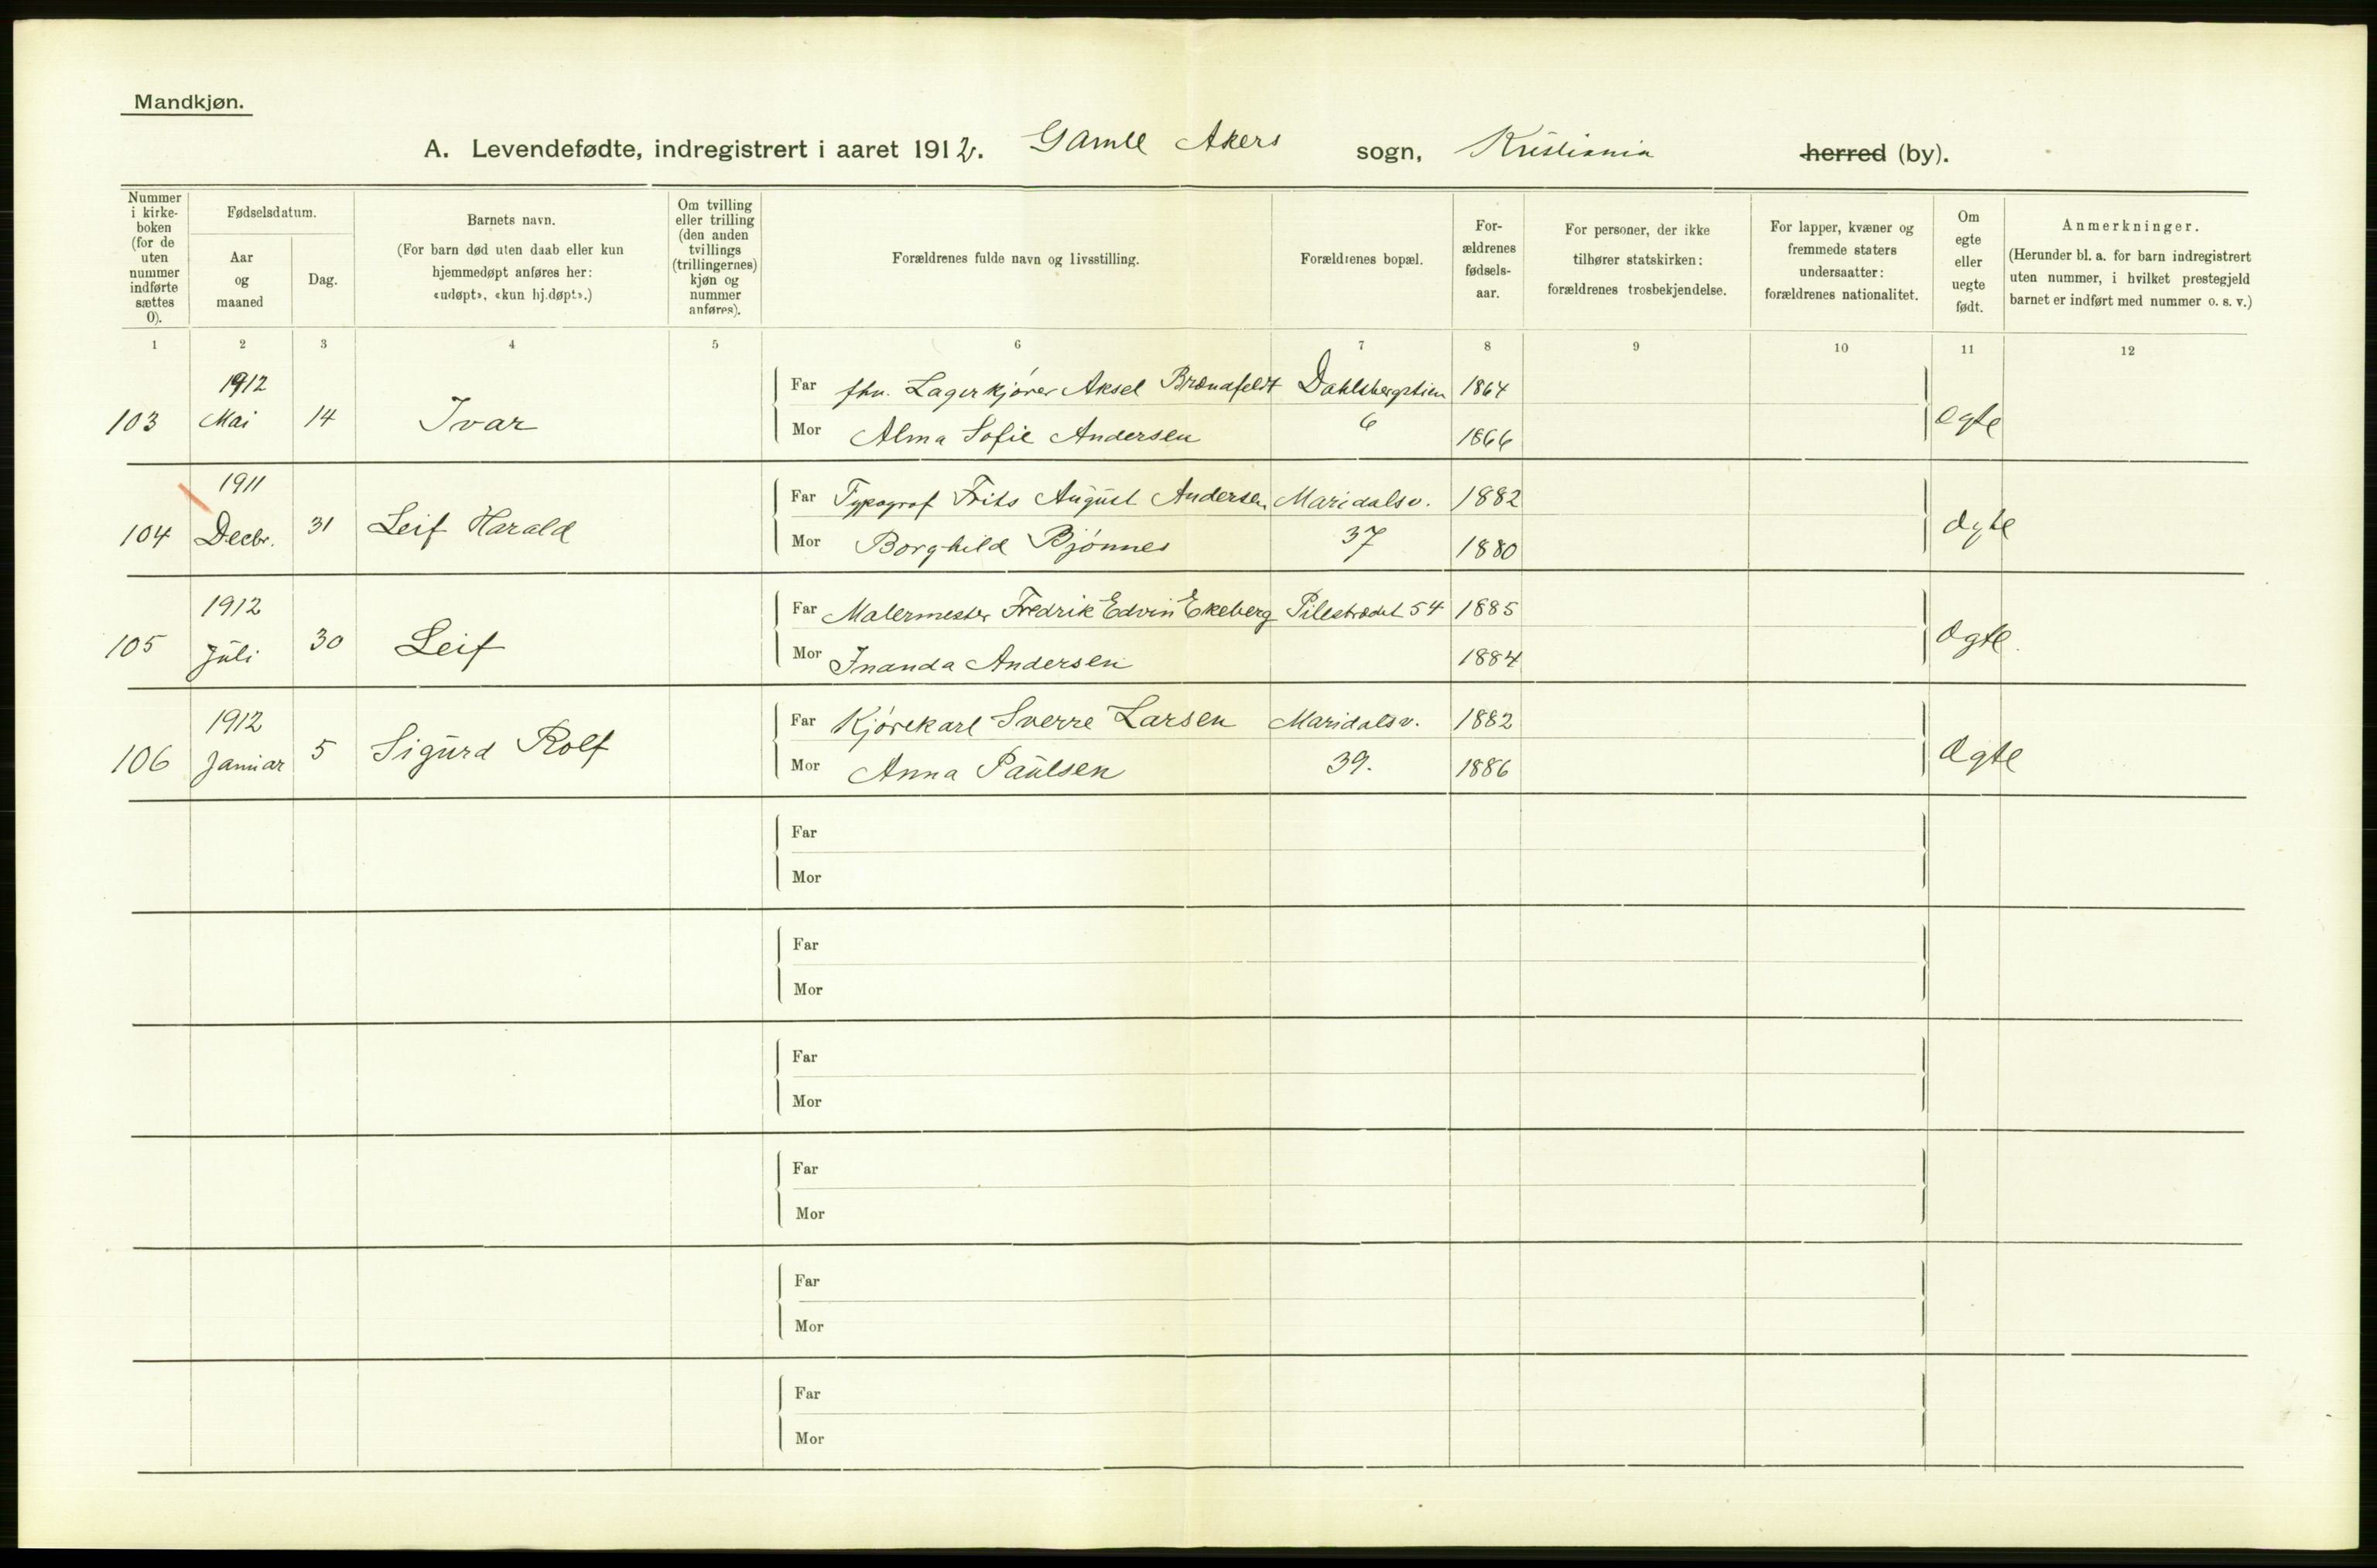 Mandkjøn.
A. Levendefødte, indregistrert i aaret 1912. Gamle Akers sogn, Kristiania herred (by).
Nummer i kirke-boken (for de uten nummer indførte sættes 0).
Fødselsdatum.
Aar og maaned
Dag.
Barnets navn.
(For barn død uten daab eller kun hjemmedøpt anføres her: «udøpt», «kun hj.døpt».)
Om tvilling eller trilling (den anden tvillings (trillingernes) kjøn og nummer anføres).
Forældrenes fulde navn og livsstilling.
Forældrenes bopæl.
For-ældrenes fødsels-aar.
For personer, der ikke tilhører statskirken: forældrenes trosbekjendelse.
For lapper, kvæner og fremmede staters undersaatter: forældrenes nationalitet.
Om egte eller uegte født.
Anmerkninger.
(Herunder bl. a. for barn indregistrert uten nummer, i hvilket prestegjeld barnet er indført med nummer o. s. v.)
1 2 3 4 5 6 7 8 9 10 11 12
1912
103 Mai 14 Ivar
Far fhv. Lagerkjører Aksel Brændfeldt Dahlsbergstien 1864
Mor Alma Sofie Andersen 6 1866
Ægte
1911
104 Decbr. 31 Leif Harald
Far Typograf Frits August Andersen Maridalsv. 1882
Mor Borghild Bjønnes 37 1880
Ægte
1912
105 Juli 30 Leif
Far Malermester Fredrik Edvin Ekeberg Pilestrædet 54 1885
Mor Inanda Andersen 1884
Ægte
1912
106 Januar 5 Sigurd Rolf
Far Kjørekarl Sverre Larsen Maridalsv. 1882
Mor Anna Paulsen 39. 1886
Ægte
Far
Mor
Far
Mor
Far
Mor
Far
Mor
Far
Mor
Far
Mor